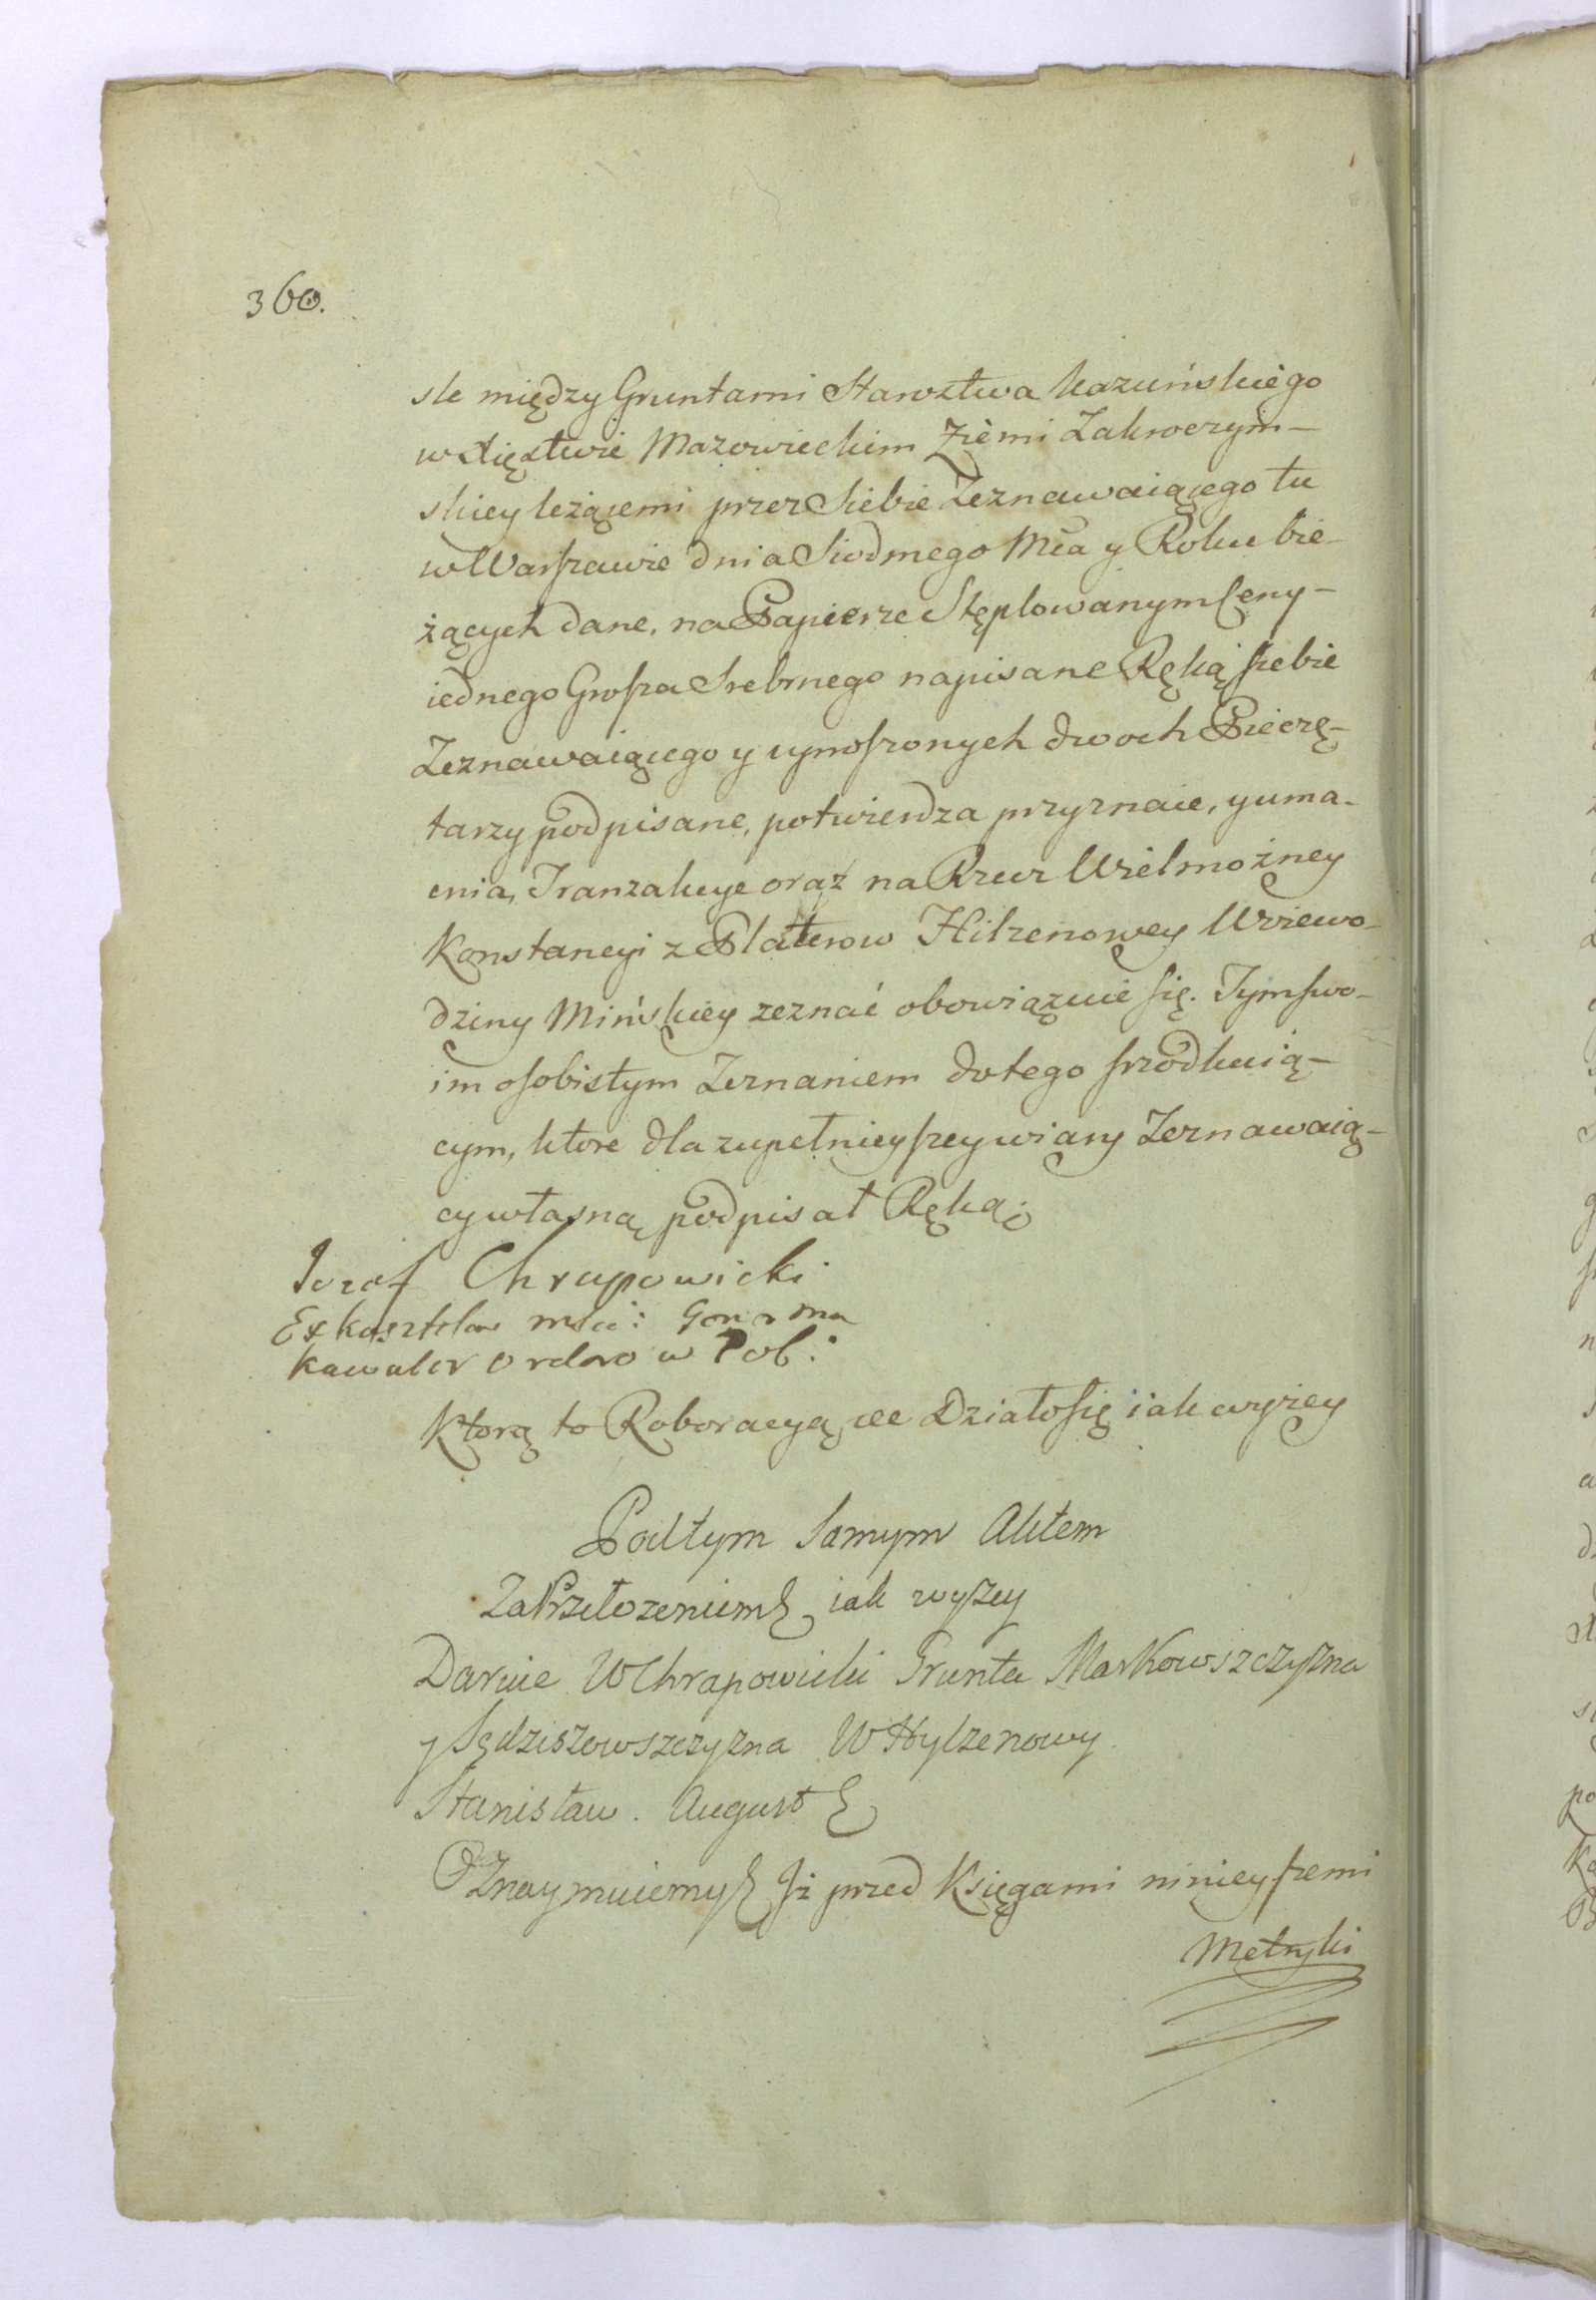 360.
śle między Gruntami Starostwa Kazuńskiego
w Xięstwie Mazowieckim Ziemi Zakroczym-
skiey leżącemi przez siebie Zeznawaiącego tu
w Warszawie dnia Siodmego Mca y Roku bie-
żących dane, na Papierze Stęplowanym Ceny-
iednego Grosza Srebrnego napisane Ręką siebie
Zeznawaiącego y uproszonych dwoch Pieczę-
tarzy podpisane, potwierdza przyznaie, y uma-
cnia, Tranzakcye oraz na Rzecz Wielmożney
Konstancyi z Platerow Hilzenowey Woiewo-
dziny Mińskiey zeznać obowiązuie się. Tym swo-
im osobistym Zeznaniem do tego srzodkuią-
cym, ktore dla zupełnieyszey wiary Zeznawaią-
cy własną podpisał Ręką;
Jozef Chrapowicki
Ex kasztelan Mści:
Kawaler Orderow Pol:
Ktorą to Roboracyą, etc Działo się iak wyżey
Pod tym samym Aktem
Za Przełozeniem iak wyszey
Daruie W Chrapowicki Grunta Markowszczyzna
y Sędziszowszczyzna W Hylzenowy
Stanisław. August
Oznaymuiemy Iż przed Księgami ninieyszemi
Metryki